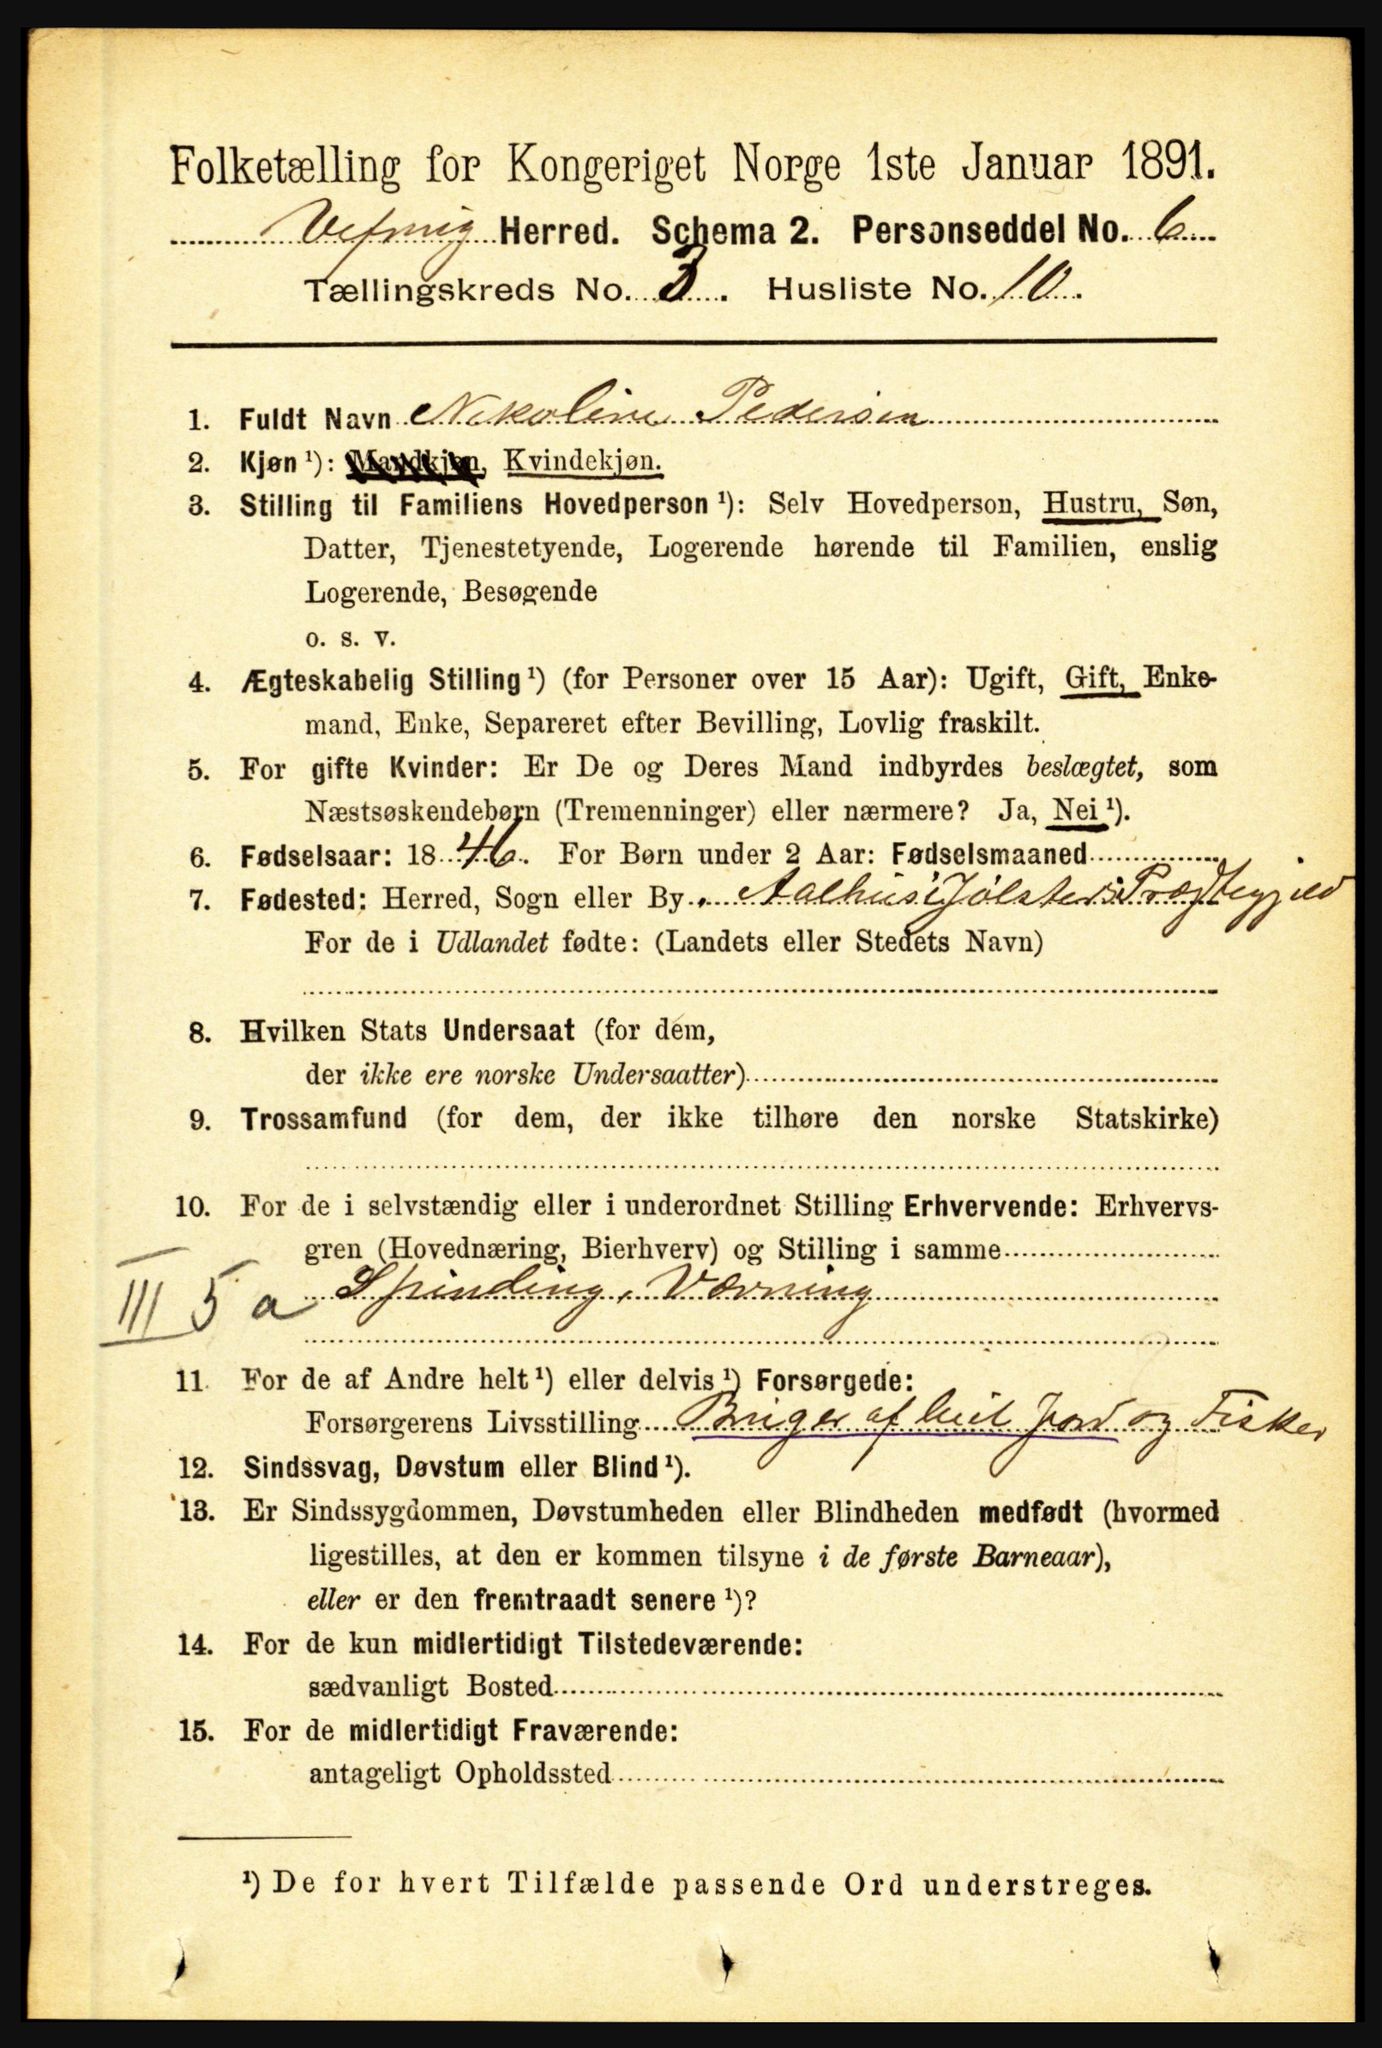 Folketælling for Kongeriget Norge 1ste Januar 1891.
Vefring Herred. Schema 2. Personseddel No. 6
Tællingskreds No. 3. Husliste No. 10.
1. Fuldt Navn Nikoline Pedersen
2. Kjøn ¹): Mandkjøn, Kvindekjøn.
3. Stilling til Familiens Hovedperson ¹): Selv Hovedperson, Hustru, Søn,
Datter, Tjenestetyende, Logerende hørende til Familien, enslig
Logerende, Besøgende
o. s. v.
4. Ægteskabelig Stilling ¹) (for Personer over 15 Aar): Ugift, Gift, Enke-
mand, Enke, Separeret efter Bevilling, Lovlig fraskilt.
5. For gifte Kvinder: Er De og Deres Mand indbyrdes beslægtet, som
Næstsøskendebørn (Tremenninger) eller nærmere? Ja, Nei ¹).
6. Fødselsaar: 1846. For Børn under 2 Aar: Fødselsmaaned
7. Fødested: Herred, Sogn eller By Aalhus i Jølsters Præstegjeld
For de i Udlandet fødte: (Landets eller Stedets Navn)
8. Hvilken Stats Undersaat (for dem,
der ikke ere norske Undersaatter)
9. Trossamfund (for dem, der ikke tilhøre den norske Statskirke)
10. For de i selvstændig eller i underordnet Stilling Erhvervende: Erhvervs-
gren (Hovednæring, Bierhverv) og Stilling i samme
III 5 a Spinding, Vævning
11. For de af Andre helt ¹) eller delvis ¹) Forsørgede:
Forsørgerens Livsstilling Bruger af leiet Jord og Fisker
12. Sindssvag, Døvstum eller Blind ¹).
13. Er Sindssygdommen, Døvstumheden eller Blindheden medfødt (hvormed
ligestilles, at den er kommen tilsyne i de første Barneaar),
eller er den fremtraadt senere ¹)?
14. For de kun midlertidigt Tilstedeværende:
sædvanligt Bosted
15. For de midlertidigt Fraværende:
antageligt Opholdssted
¹) De for hvert Tilfælde passende Ord understreges.